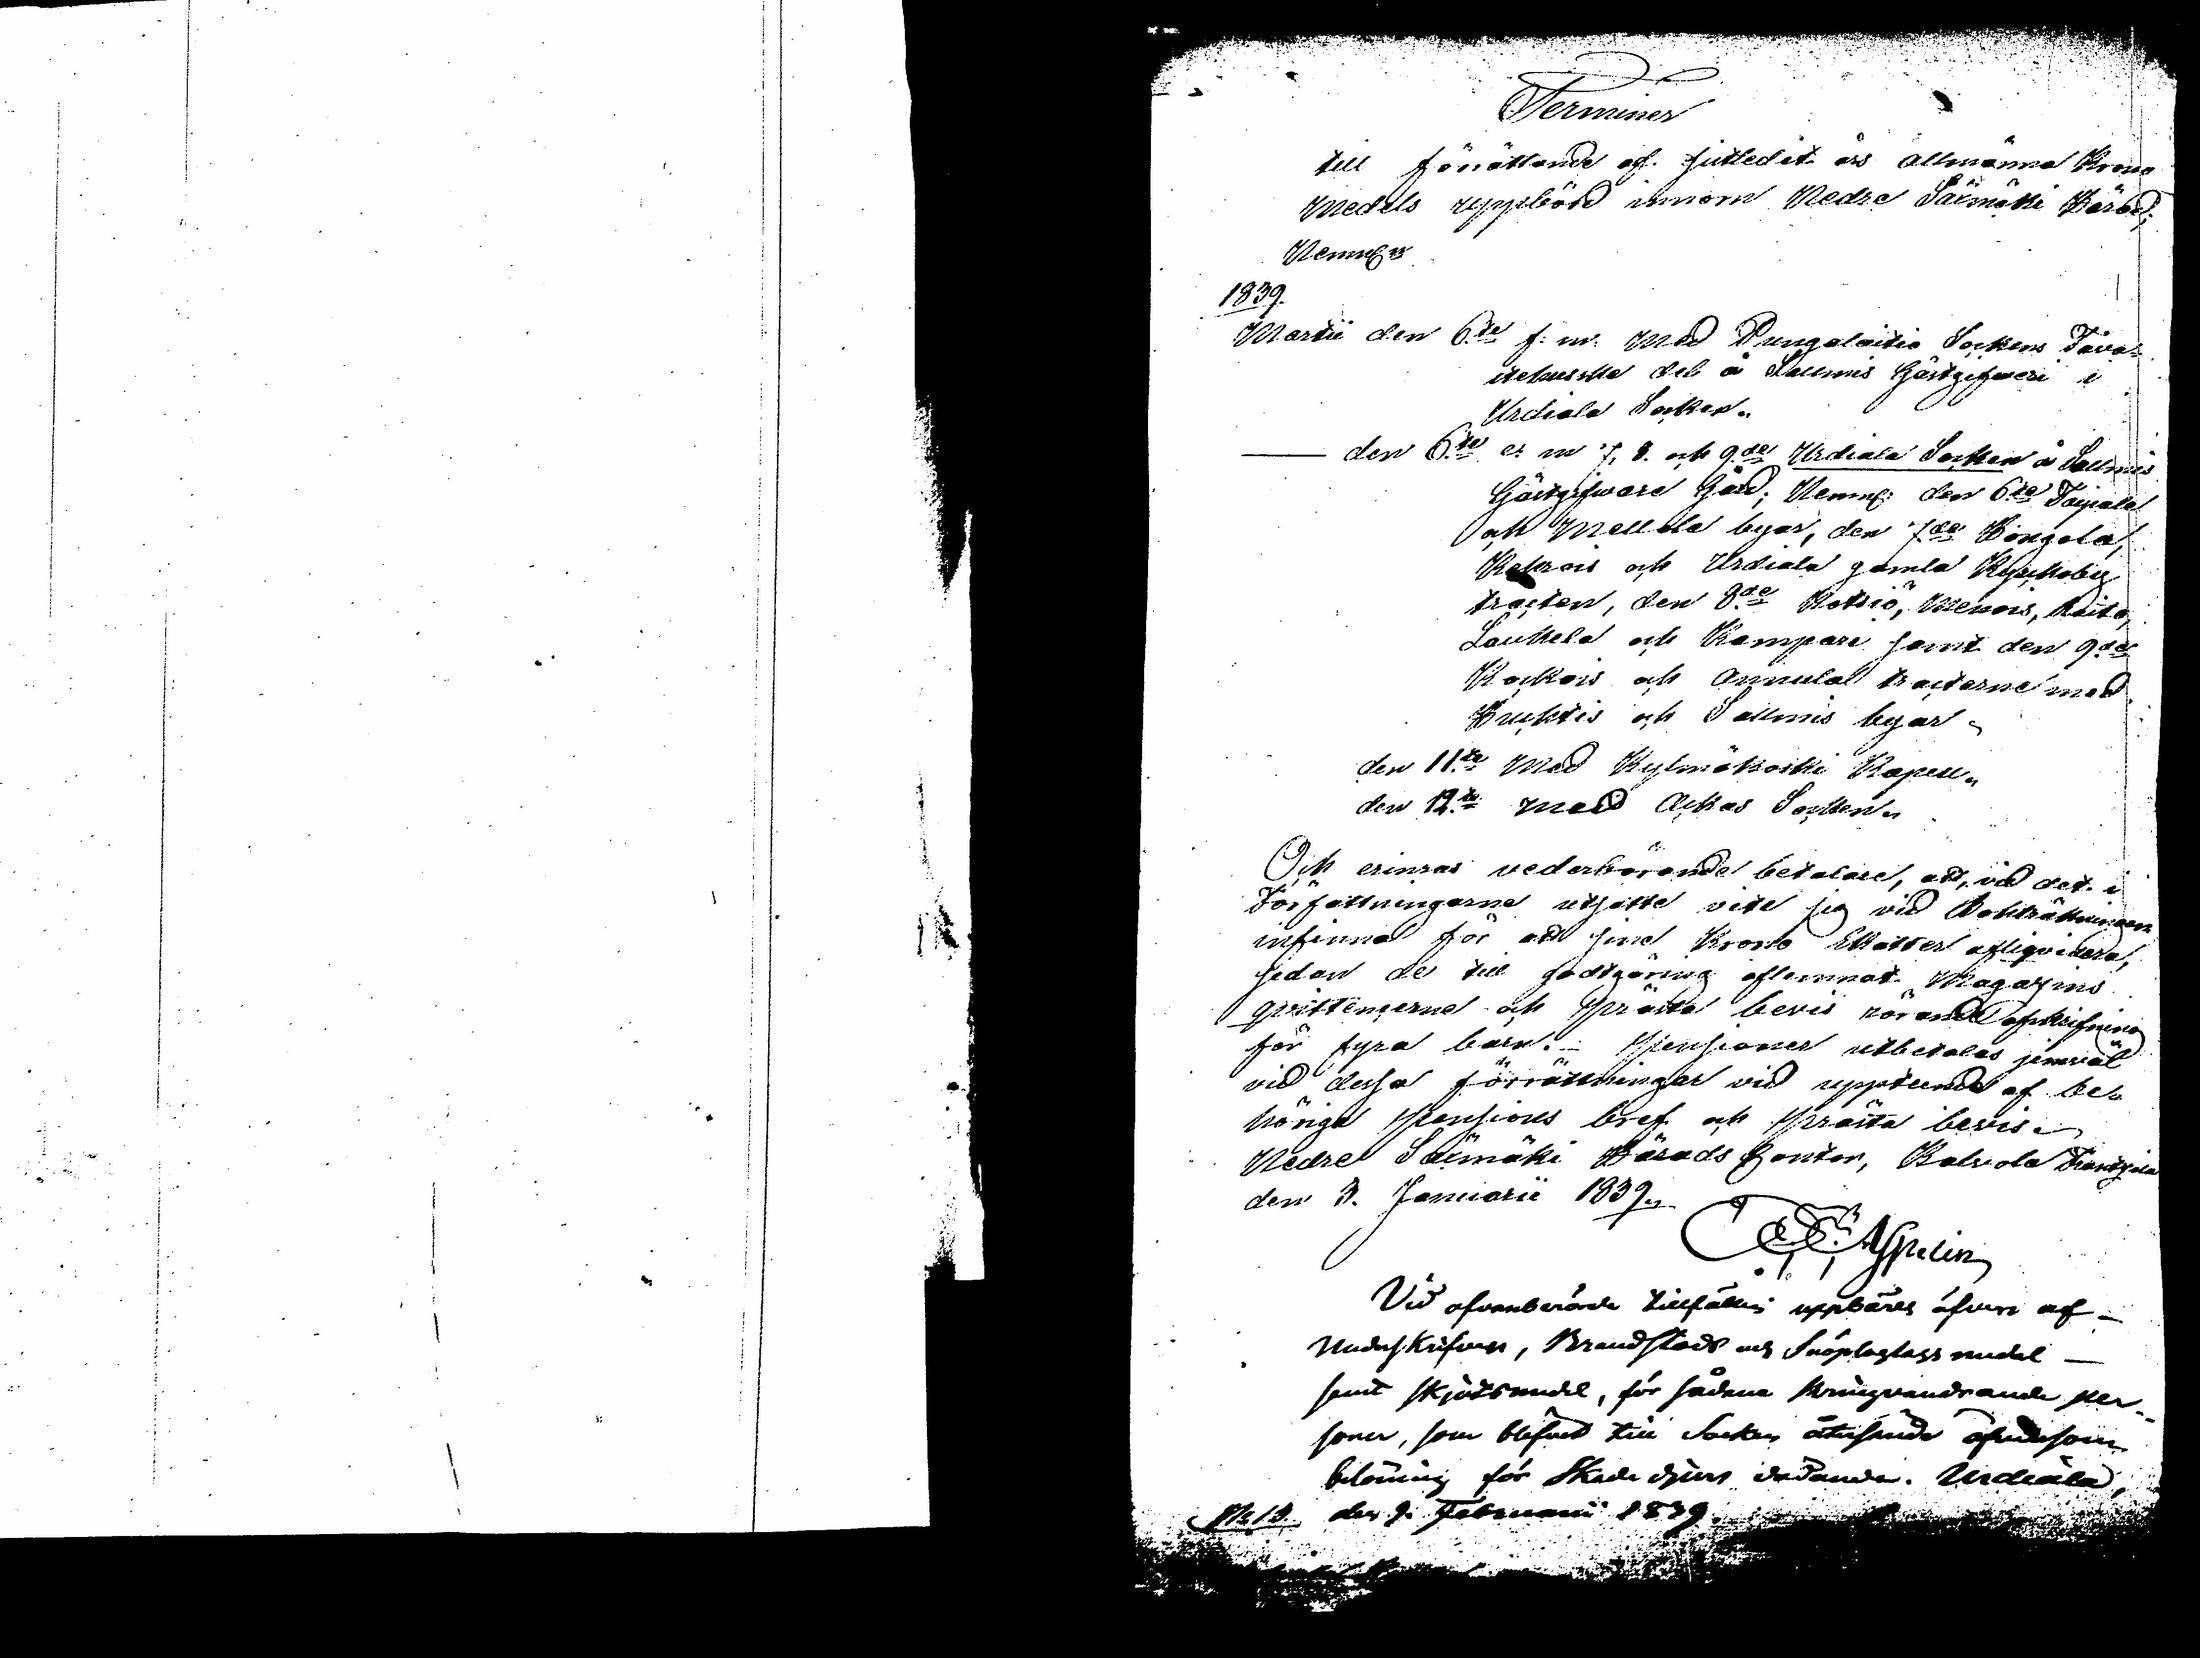 Terminer
till förrättande af sistledit års allmänna Krono
Medels uppbörd innom Nedre Säxmäki Härad;
Nemnl:n
1839.
Martii den 6:te f. m. Med Pungalaitio Sockens Tava-
stehusske del å Sallmis Gästgifveri i
Urdiala Socken.
den 6:te e. m 7, 8. och 9:de Urdiala Socken å Sallmis
Gästgifvare Gård; Nemnl: den 6:te Taipale
och Mellola byar, den 7:de Hongola,
Kehrois och Urdiala gamla Kyrkoby
tracten, den 8:de Matkio, Menois, Raito,
Laukela och Kampari samt den 9:de
Kockois och Annula tracterne med
Huhtis och Sallmis byar
den 11:te Med Kylmäkoski Kapell
den 12:te Med Ackas Socken
Och erinras vederbörande betalare, att, vid det i
Författningarne utsatte vite sig vid
infinna för att sine Krono Skatter afliqvidera,
sedan de till godtgöring aflemnat Magazins
qvittencerne och Prästa bevis rörande afskrifning
för fyra barn. Pensioner utbetalas jemväl
vid dessa förrättningar vid uppteende af be-
höriga Pensions bref och Prästa bevis.
Nedre Säxmäki Härads Contor, Kalvola
den 3. Januarii 1839.
Aspelin
Vid ofvanberörde tillfällen uppbäres äfven af
Undersskrifven, Brandstods och Snöplogslags medel
samt skjutsmedel, för sådane kringvandrande per-
soner, som blifvit till Socken återsände äfvensom
belöning för Skadedjurs dödande. Urdiala,
den 9. Februarii 1839.
N:o 13.